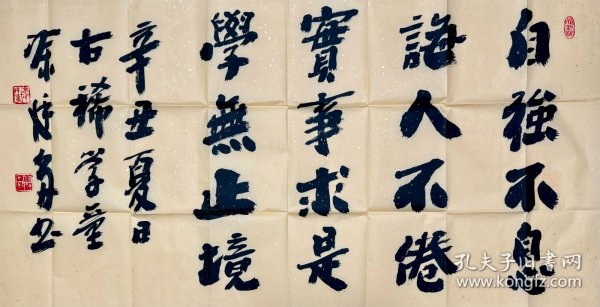 自強不息
誨人不倦
實事求是
學無止境
辛丑夏日
古稀学童
书
孔夫子旧书网
www.kongfz.com